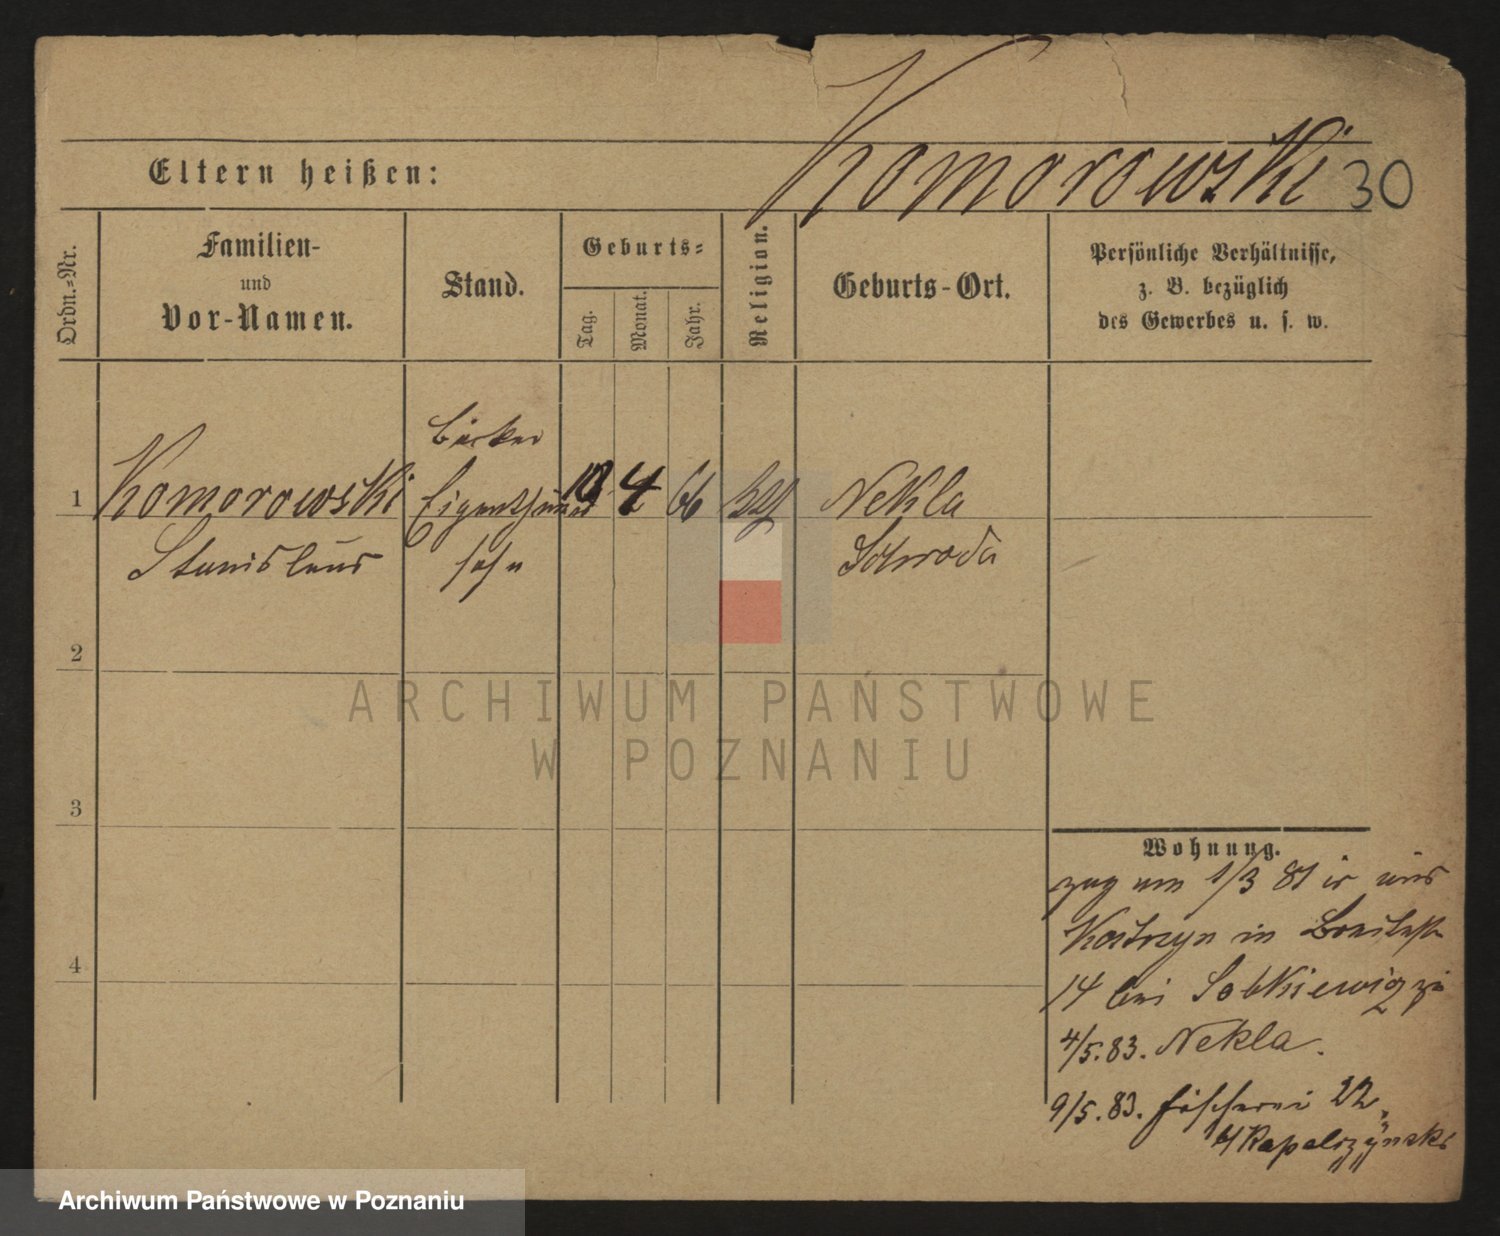 Komorowski 30
Eltern heißen:
Ordn.-Nr.
Familien-
und
Vor-Namen.
Stand.
Geburts-
Tag.
Monat.
Jahr.
Religion.
Geburts-Ort.
Persönliche Verhältnisse,
z. B. bezüglich
des Gewerbes u. s. w.
Bäcker
1 Komorowski Eigenthümer 4 66 Nekla
Stanislaus sohn Schroda
2
3
4
Wohnung.
zug am 1/3 81 aus
Kostrzyn in Breitestr
14 bei Sobkiewicz
4/5. 83. Nekla.
9/5. 83. Fischerei 22
ARCHIWUM PAŃSTWOWE
W POZNANIU
Archiwum Państwowe w Poznaniu